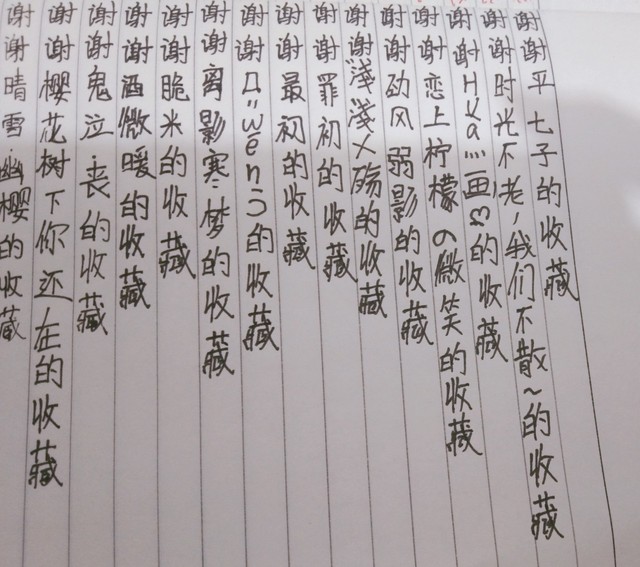 谢谢平七子的收藏
谢谢时光不老，我们不散~的收藏
谢谢Hya画的收藏
谢谢恋上柠檬の微笑的收藏
谢谢劲风弱影的收藏
谢谢浅淺乂殇的收藏
谢谢罪初的收藏
谢谢最初的收藏
谢谢wēn的收藏
谢谢离影寒梦的收藏
谢谢脆米的收藏
谢谢酒微暖的收藏
谢谢鬼泣·丧的收藏
谢谢樱花树下你还在的收藏
谢谢晴雪·幽樱的收藏